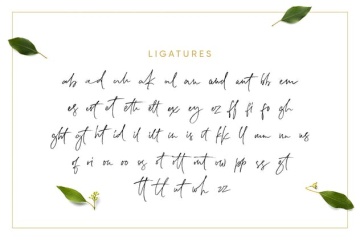 LIGATURES
ab ad ah ak al an and ant bb em
es eot et eth ett ex ey ez ff fi fo gh
ght gt ht id il ilt in is it kk ll mm nn ns
of oi on oo os ot ott out ow pp ss st
tt tl ut wh zz